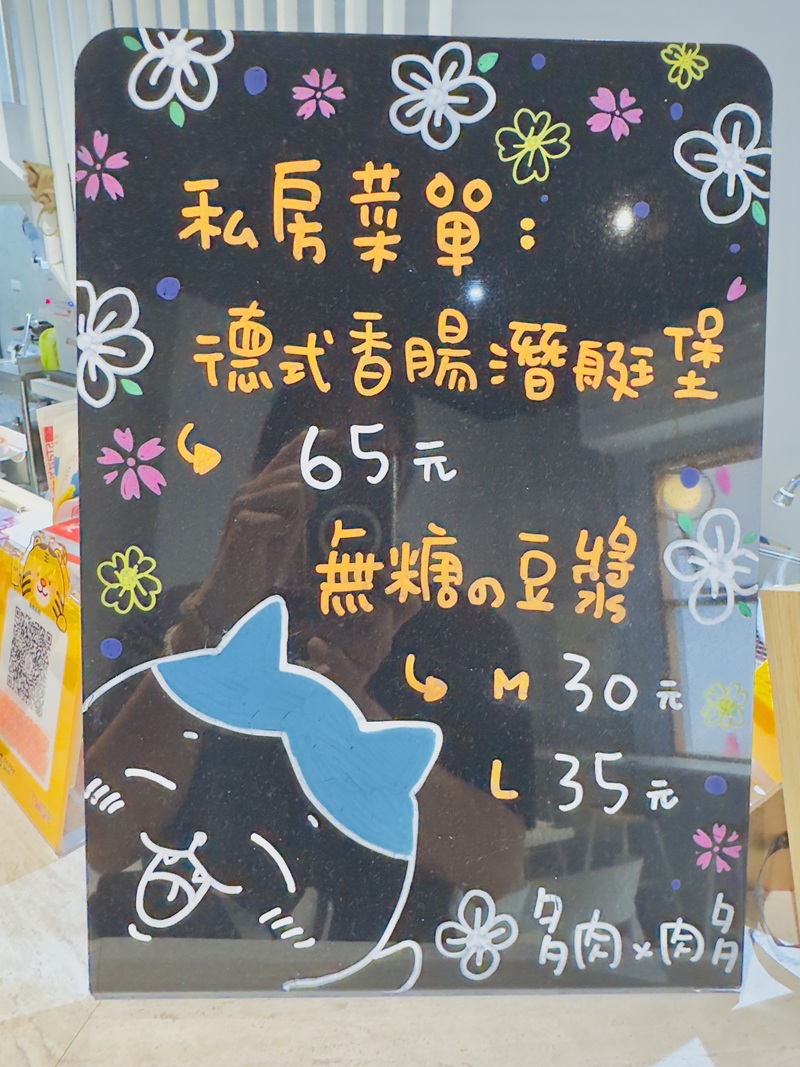 私房菜單：
德式香腸潛艇堡
65元
無糖の豆漿
M 30元
L 35元
多肉×肉多